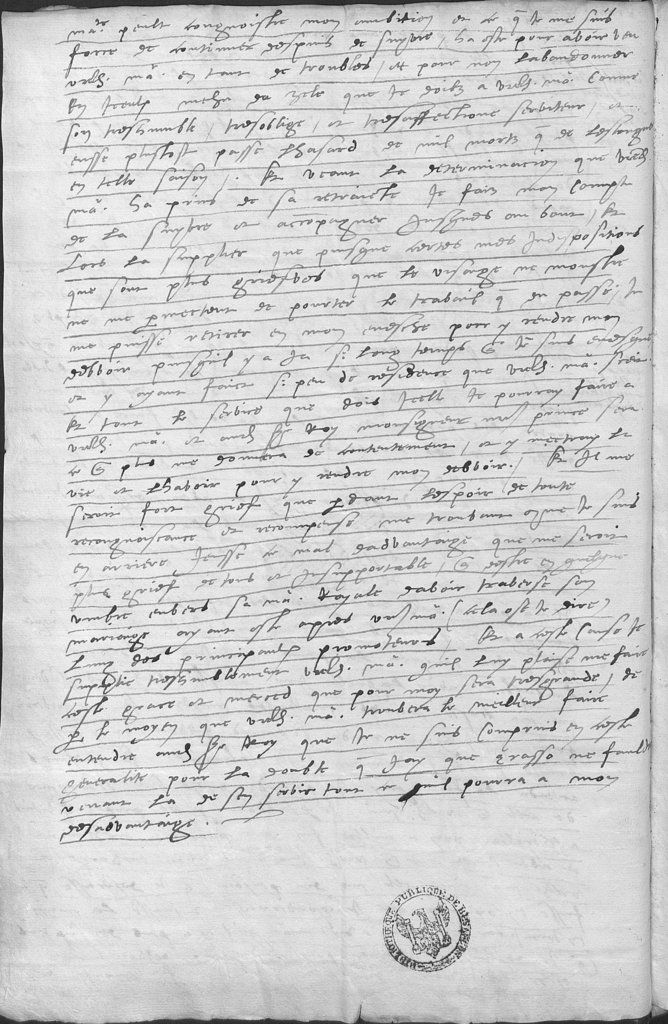 ma.te peult congnoistre mon ambition et ce q je me suis
force de continuer despuis de suyvre, ha este pour avoir veu
vred. ma. en tant de troubles, et pour non labandonner
en iceulx mehu du zele que je doibz a vred. ma. comme
son treshumble, tresoblige, et tresaffectionne serviteur, et
eusse plustost passe lhasard de mil mortz q de
en telle saison. Et veant la determinacion que vred.
ma. ha prins de sa retraicte je faiz mon compte
de la suyvre et accompagner jusques au bout, et
lors la supplier que puisque certes mes indispositions
que sont plus griefves que le visaige ne monstre
ne me permectent de pourter le travail q du passe, je
me puisse retirer en mon evesche pour y rendre mon
debvoir puisquil y a ja si long temps q je suis evesque
et y ayant faict si peu de residence que vred. ma. scait
et tout le service que dois icelle je pourray faire a
vred. ma. et aud. sr Roy monseigneur nre prince sera
ce q plus me donnera de contentement, et y mectray la
vie et lhavoir pour y rendre mon debvoir. Et il me
seroit fort grief que perdant lespoir de toute
recongnoissance et recompense me trouvant comme je suis
en arriere, jeusse ce mal dadvantaige que me seroit
plus grief de tous et insupportable, q destre en quelque
umbre envers sa ma. Royale davoir traverse son
mariaige ayant este apres vred. ma. (cela ose je dire)
lung des principaulx promoteurs, Et a ceste cause je
supplie treshumblement vred. ma. quil luy plaise me faire
ceste grace et merced que pour moy sera tresgrande, de
p le moyen que vred. ma. trouvera le meilleur faire
entendre aud. sr Roy que je ne suis comprins en ceste
generalite pour la doubte q jay que grasso ne fauldra
venant la de sen servir tout ce quil pourra a mon
desadvantaige.
BIBLIOTHEQUE PUBLIQUE DE BESANCON